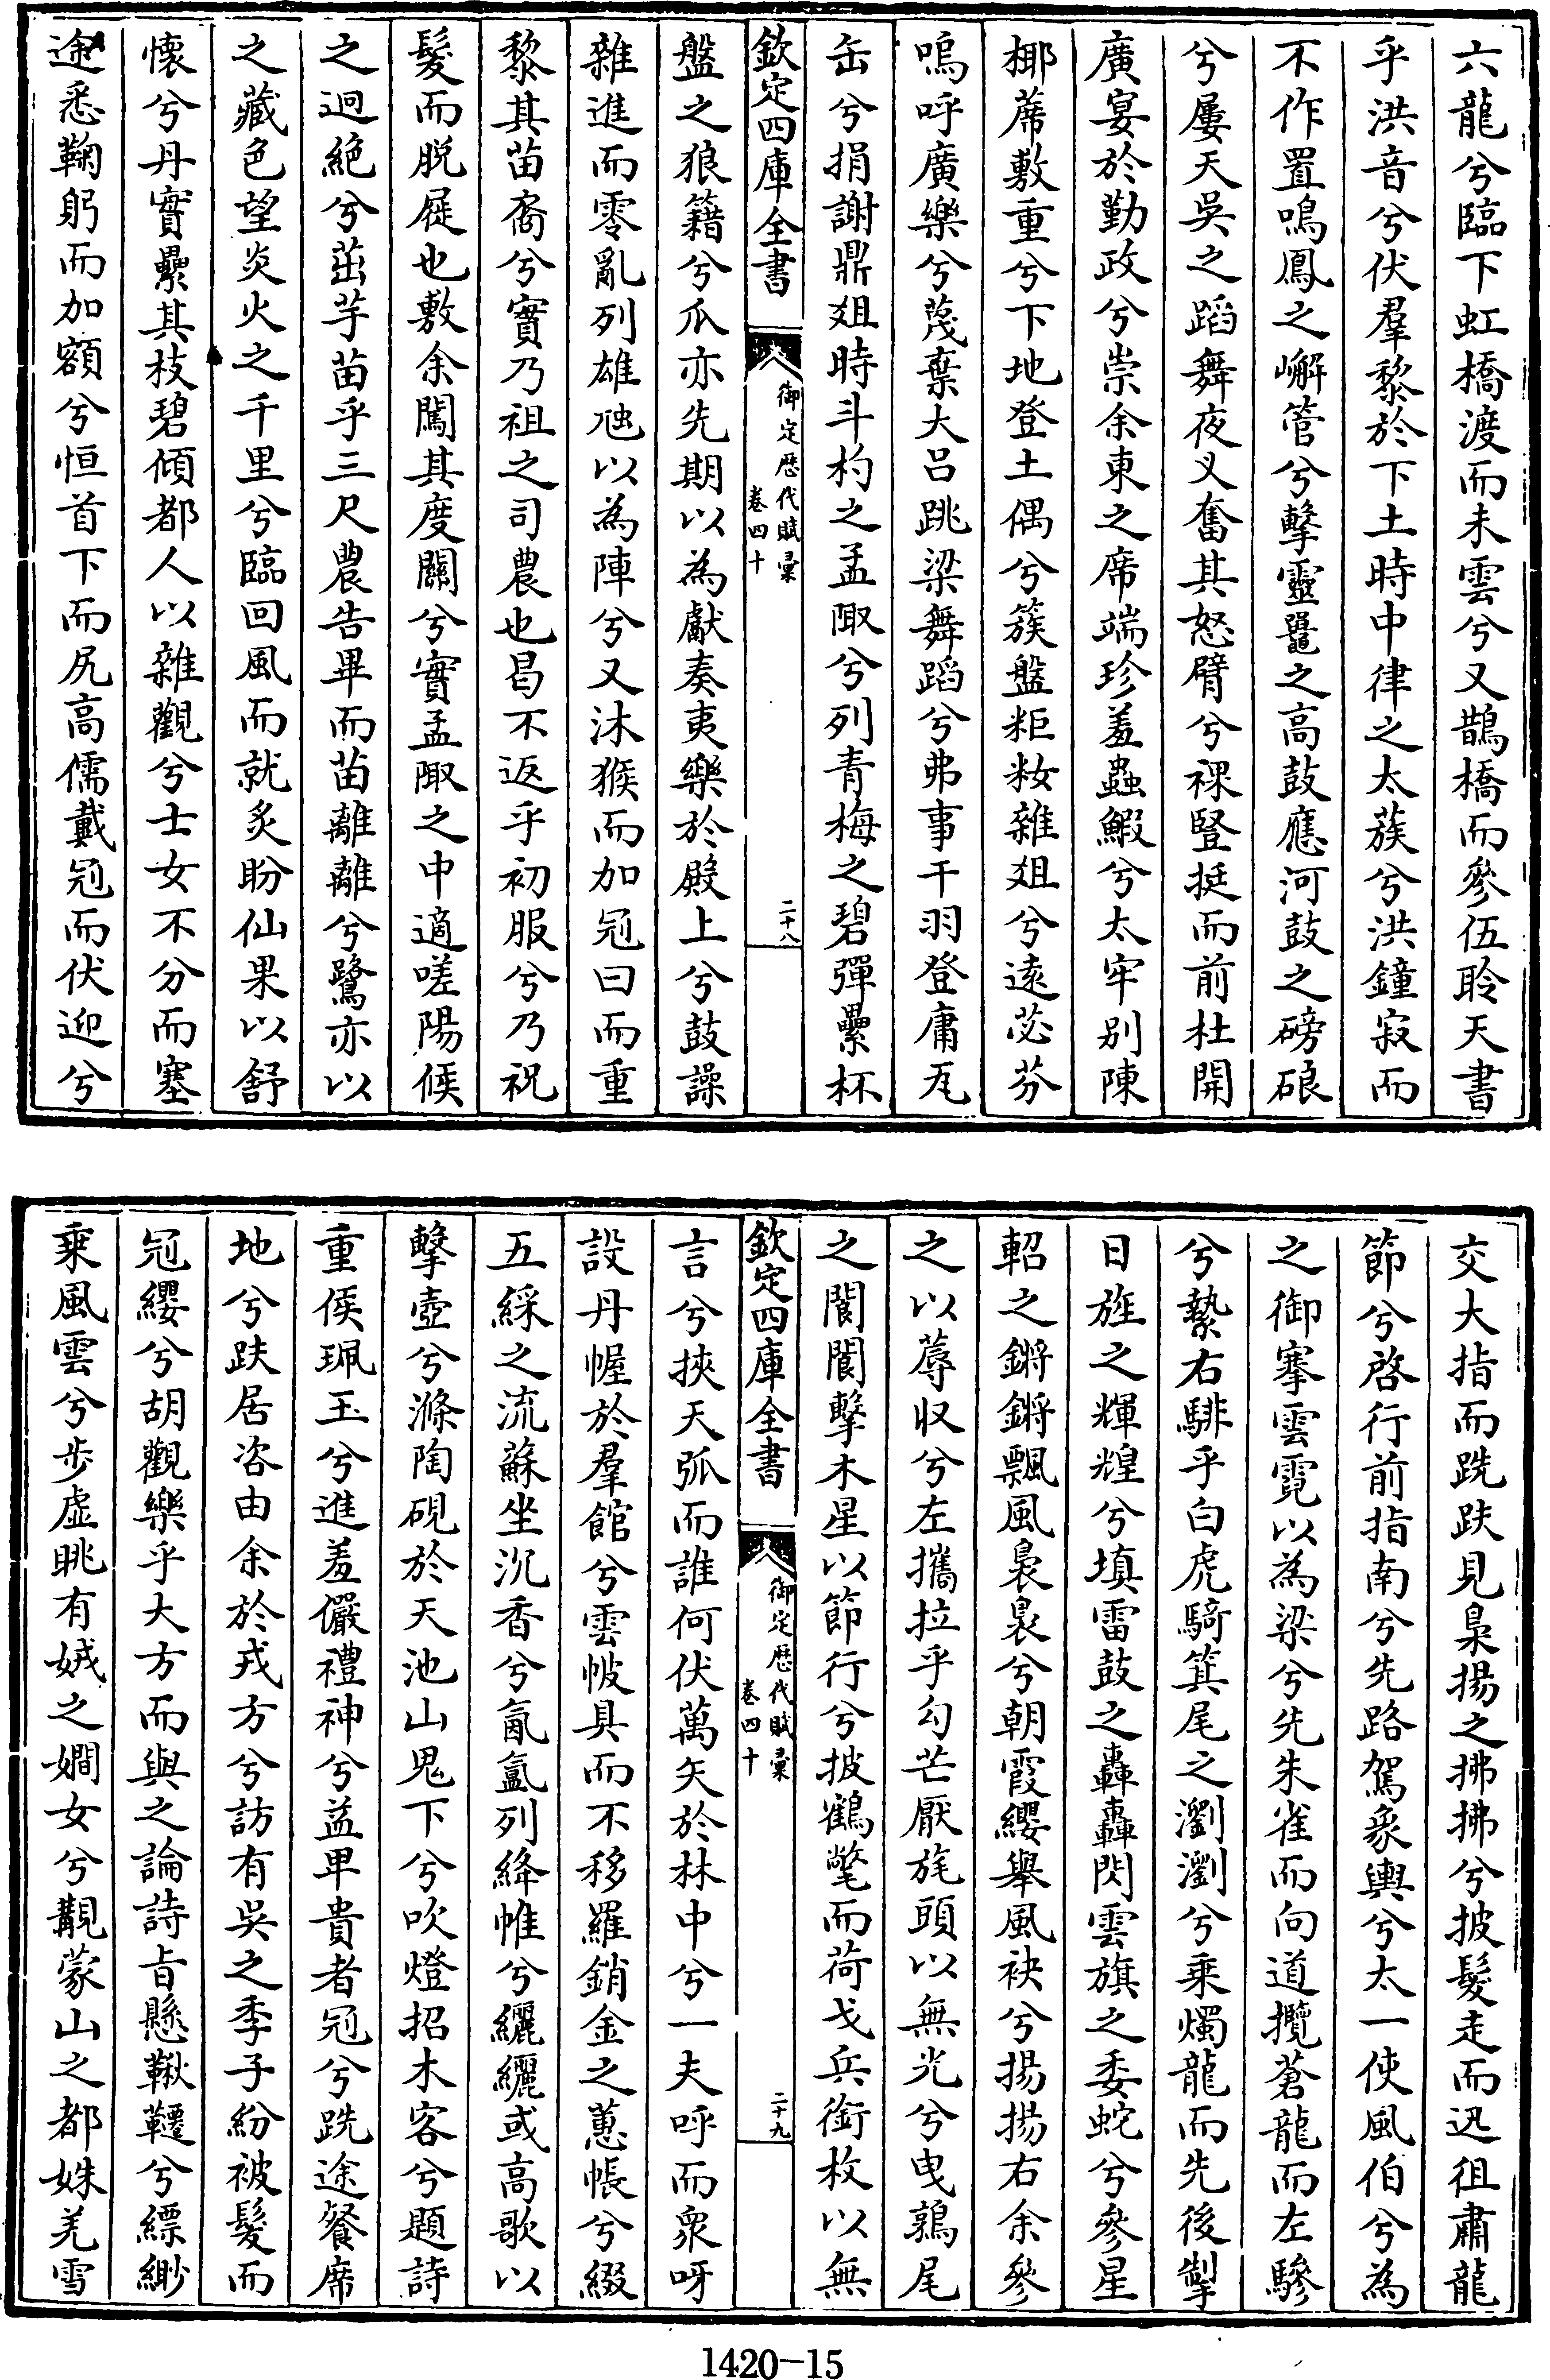 六龍兮臨下虹橋渡而未雲兮又鵲橋而參伍聆天書
乎洪音兮伏羣黎於下土時中律之太蔟兮洪鐘寂而
不作置鳴鳳之嶰管兮擊靈鼉之高鼓應河鼓之磅硠
兮屢天吳之蹈舞夜叉奮其怒臂兮裸豎挺而前杜開
廣宴於勤政兮崇余東之席端珍羞蟲鰕兮太牢别陳
椰蓆敷重兮下地登土偶兮簇盤粔籹雜俎兮逺苾芬
嗚呼廣樂兮蔑棄大吕跳梁舞蹈兮弗事干羽登庸瓦
缶兮捐謝鼎俎時斗杓之孟陬兮列青梅之碧彈纍杯
欽定四庫全書
御定歴代賦彙
卷四十
二十八
盤之狼籍兮瓜亦先期以為獻奏夷樂於殿上兮鼓譟
雜進而零亂列雄虺以為陣兮又沐猴而加冠曰而重
黎其苗裔兮實乃祖之司農也曷不返乎初服兮乃祝
髪而脱屣也敷余闖其度關兮實孟陬之中適嗟陽候
之迥絶兮茁芋苗乎三尺農告畢而苗離離兮鷺亦以
之藏色望炎火之千里兮臨回風而就炙盼仙果以舒
懐兮丹實纍其枝碧傾都人以雜觀兮士女不分而塞
途悉鞠躬而加額兮恒首下而尻高儒戴冠而伏迎兮
交大指而跣趺見梟揚之拂拂兮披髪走而迅徂肅龍
節兮啓行前指南兮先路駕象輿兮太一使風伯兮為
之御搴雲霓以為梁兮先朱雀而向道攬蒼龍而左驂
兮縶右騑乎白虎騎箕尾之瀏瀏兮乗燭龍而先後掣
日旌之輝煌兮填雷鼓之轟轟閃雲旗之委蛇兮參星
軺之鏘鏘飄風裊裊兮朝霞纓舉風袂兮揚揚右余參
之以蓐収兮左攜拉乎勾芒厭旄頭以無光兮曳鶉尾
之閬閬擊木星以節行兮披鶴氅而荷戈兵銜枚以無
欽定四庫全書
御定歴代賦彙
卷四十
二十九
言兮挾天弧而誰何伏萬矢於林中兮一夫呼而衆呀
設丹幄於羣館兮雲帔具而不移羅銷金之蕙帳兮綴
五綵之流蘇坐沉香兮氤氲列絳帷兮纚纚或高歌以
擊壺兮滌陶硯於天池山鬼下兮吹燈招木客兮題詩
重侯珮玉兮進羞儼禮神兮益畢貴者冠兮跣途餐席
地兮趺居咨由余於戎方兮訪有吳之季子紛被髪而
冠纓兮胡觀樂乎大方而與之論詩旨懸鞦韆兮縹緲
乗風雲兮步虚眺有娀之嫺女兮覯蒙山之都姝羌雪
1420-15